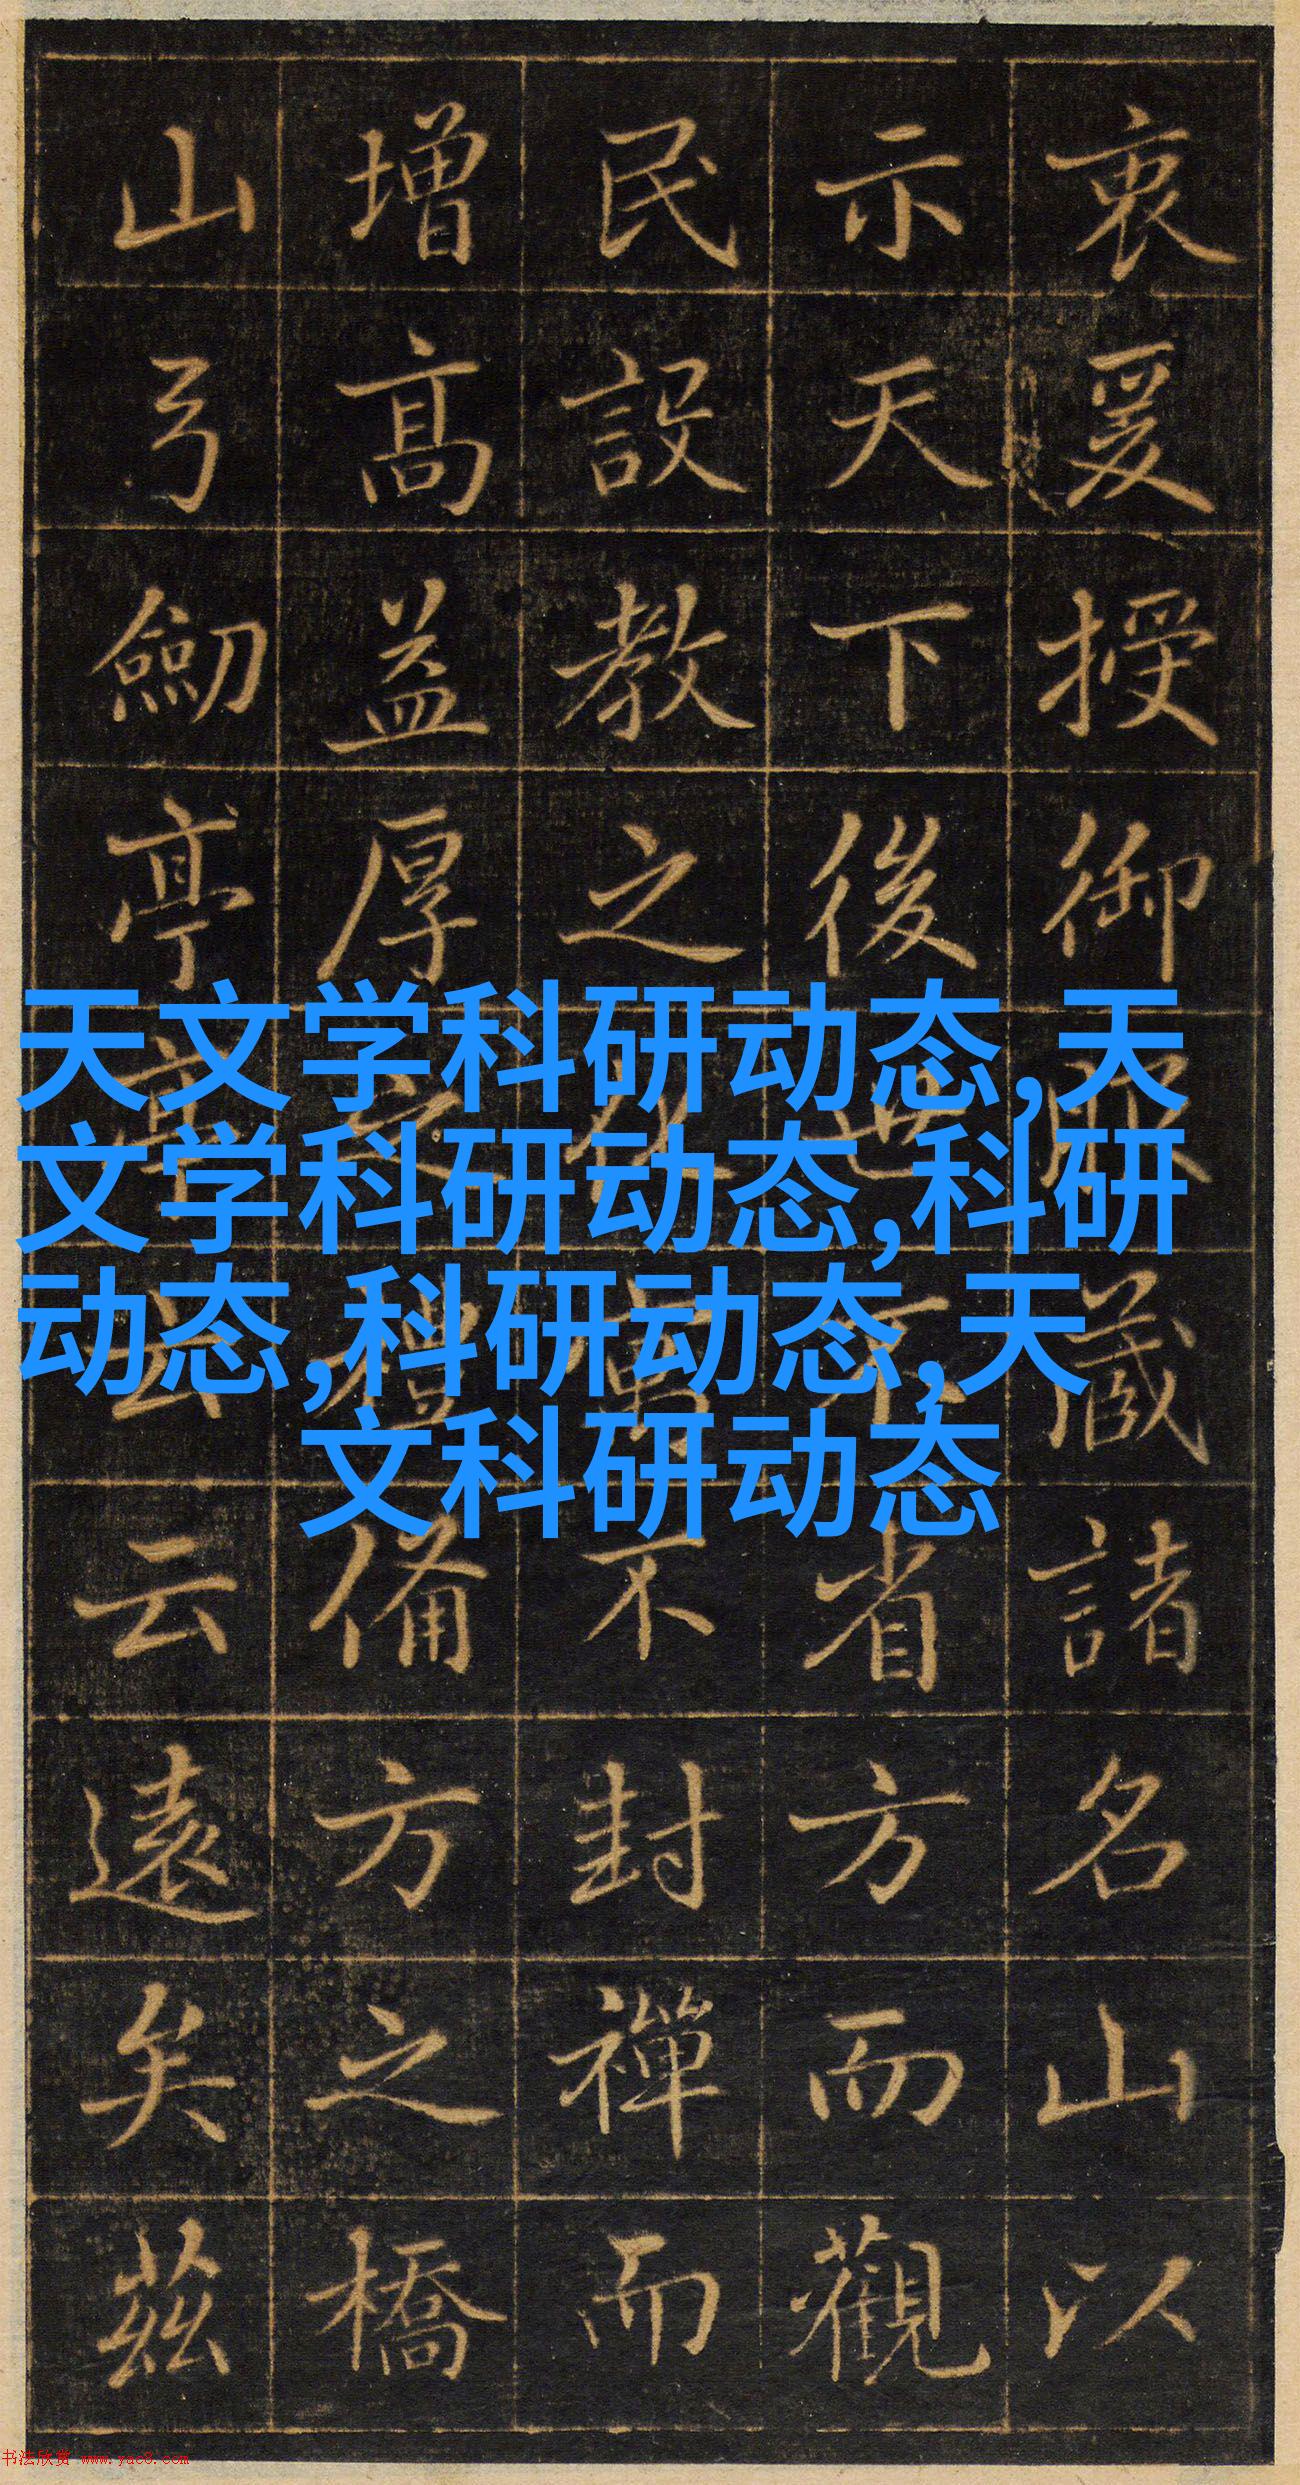 衷爰授御藏諸名山以
示天下後世不省方而觀
民設教之不封禪而
增高益厚之禮備方之橋
山弓劒亭亭云云遠矣茲
天文学科研动态,天
文学科研动态,科研
动态,科研动态,天
文科研动态
书法欣赏 www.yac8.com